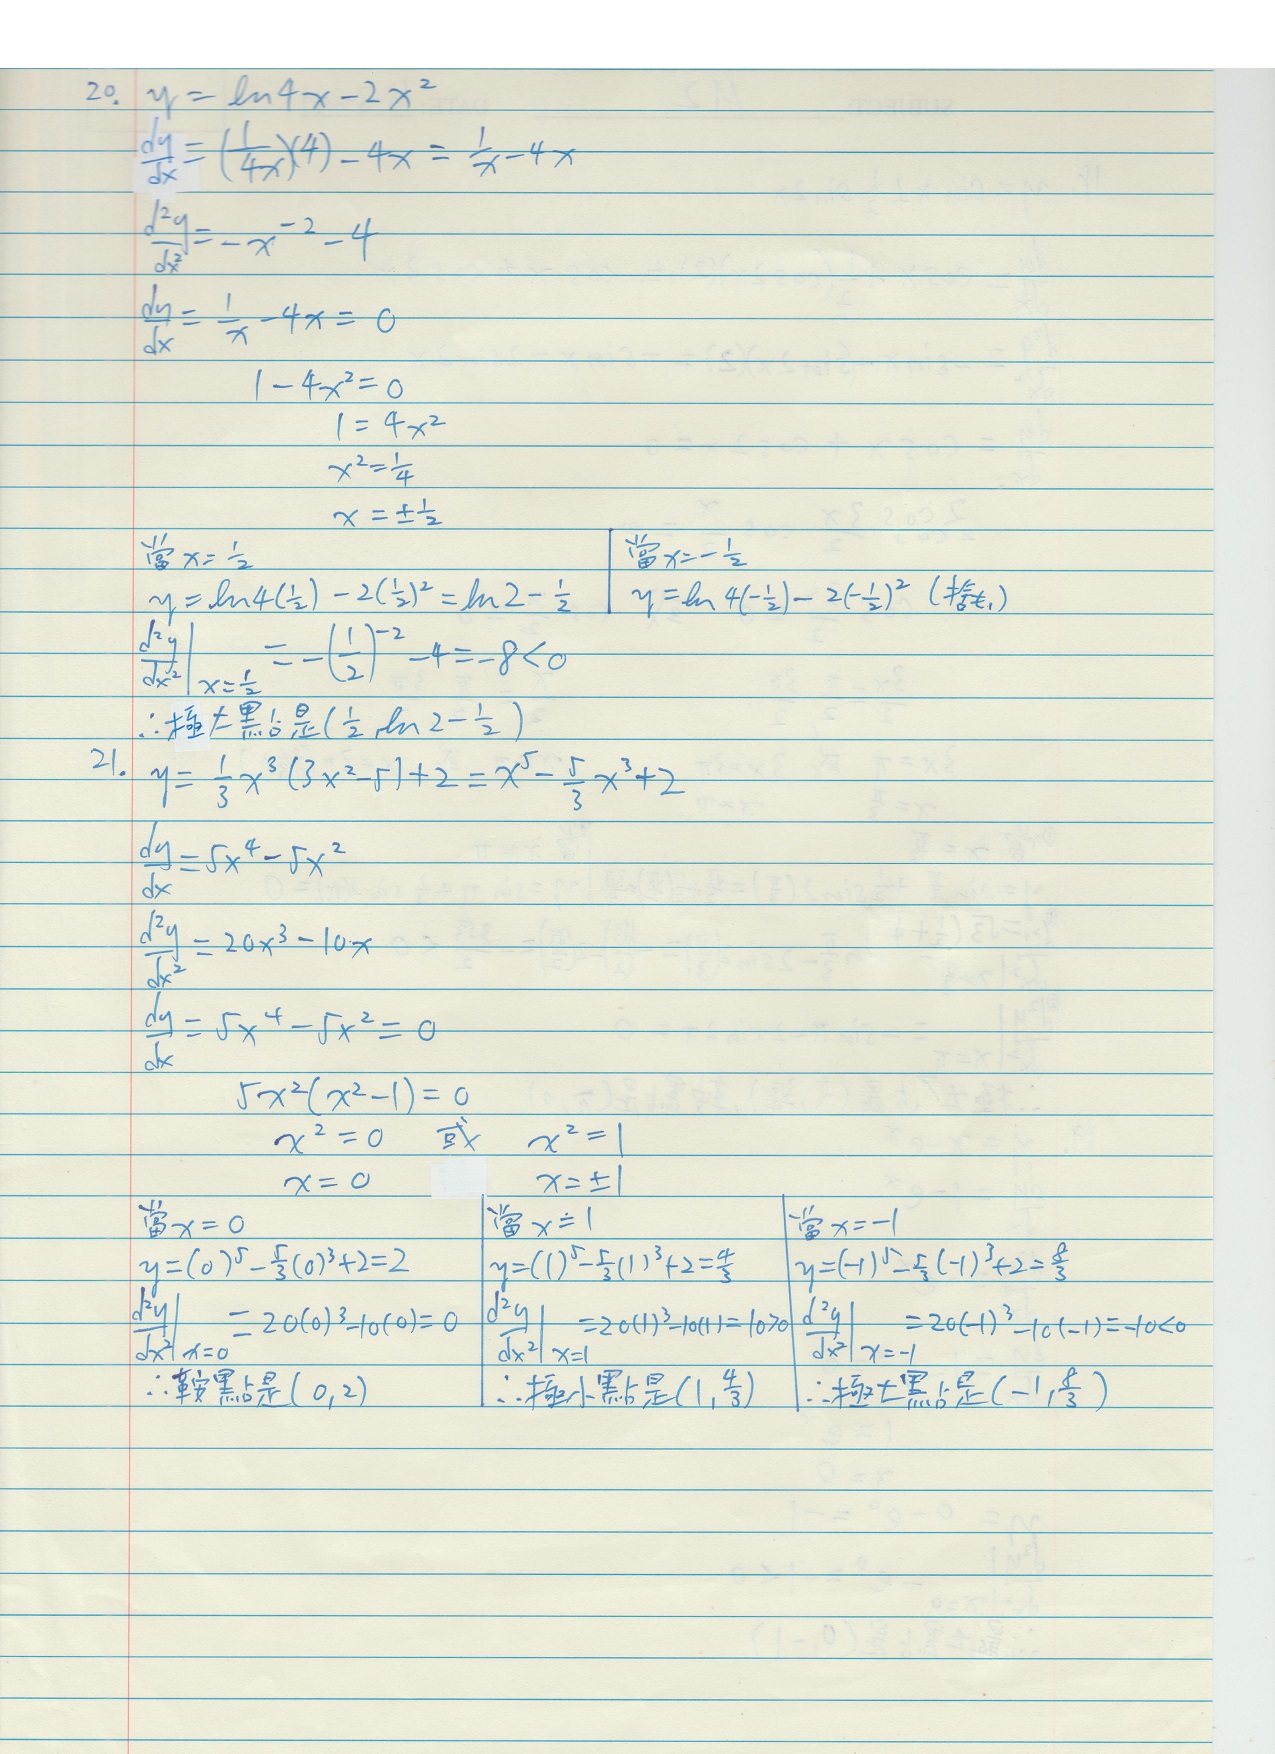 20. y = ln4x - 2x²
dy/dx = (1/4x)(4) - 4x = 1/x - 4x
d²y/dx² = -x⁻² - 4
dy/dx = 1/x - 4x = 0
1 - 4x² = 0
1 = 4x²
x² = 1/4
x = ±1/2
當 x = 1/2
y = ln4(1/2) - 2(1/2)² = ln2 - 1/2
d²y/dx²|x=1/2 = -(1/2)⁻² - 4 = -8 < 0
∴極大點是(1/2, ln2 - 1/2)
當 x = -1/2
y = ln4(-1/2) - 2(-1/2)² (捨去)
21. y = 1/3 x³(3x² - 5) + 2 = x⁵ - 5/3 x³ + 2
dy/dx = 5x⁴ - 5x²
d²y/dx² = 20x³ - 10x
dy/dx = 5x⁴ - 5x² = 0
5x²(x² - 1) = 0
x² = 0 或 x² = 1
x = 0 x = ±1
當 x = 0
y = (0)⁵ - 5/3(0)³ + 2 = 2
d²y/dx²|x=0 = 20(0)³ - 10(0) = 0
∴鞍點是(0, 2)
當 x = 1
y = (1)⁵ - 5/3(1)³ + 2 = 4/3
d²y/dx²|x=1 = 20(1)³ - 10(1) = 10 > 0
∴極小點是(1, 4/3)
當 x = -1
y = (-1)⁵ - 5/3(-1)³ + 2 = 8/3
d²y/dx²|x=-1 = 20(-1)³ - 10(-1) = -10 < 0
∴極大點是(-1, 8/3)